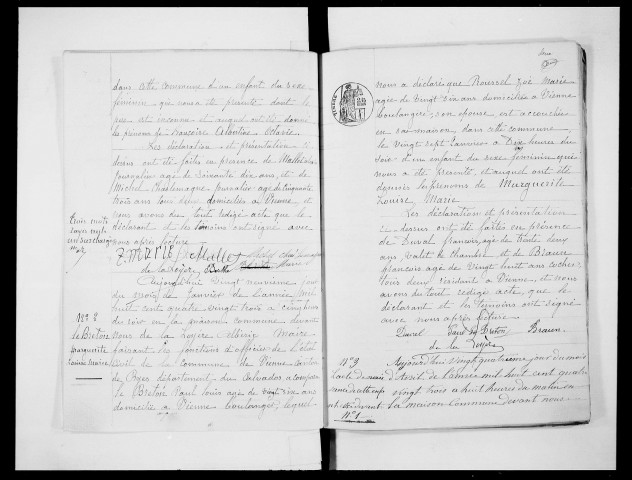 dans cette commune d'un enfant du sexe
féminin qui nous a été présenté dont le
père est inconnu et auquel ont été donné
les prénoms de Françoise Albertine Octavie
Les déclaration et présentation ci
dessus ont été faites en présence de Mallet
journalier agé de soixante dix ans, et de
Michel Charlemagne journalier agé de cinquante
trois ans tous deux domiciliés à Vienne, et
nous avons du tout rédigé acte que le
déclarant et les témoins ont signé avec
nous après lecture
Trois mots
rayés nuls
Z. Marie Mallet
de la Loyère
N° 2
le Bretoic
Marguerite
Louise Marie
Aujourd'hui vingt neuvième jour
du mois de Janvier de l'année mil
huit cent quatre vingt trois à cinq heures
du soir en la maison commune devant
Nous de la Loyère Albéric Maire
faisant les fonctions d'officier de l'état
civil de la Commune de Vienne canton
de Ryes département du Calvados a comparu
le Bretoic Paul Louis agé de vingt six ans
domicilié à Vienne boulanger lequel
nous a déclaré que Roussel Zoé Marie
agée de vingt six ans domiciliée à Vienne
boulangère, son épouse est accouchée
en sa maison, dans cette commune
le vingt sept Janvier à dix heures du
soir d'un enfant du sexe féminin qui
nous a été présenté, et auquel ont été
donnés les prénoms de Marguerite
Louise Marie
Les déclaration et présentation ci
dessus ont été faites en présence
de Duval françois, agé de trente deux
ans, valet de chambre et de Braun
françois agé de vingt huit ans cocher
tous deux résidant à Vienne, et nous
avons du tout rédigé acte, que le
déclarant et les témoins ont signé
avec nous après lecture
Duval Paul le Bretoic Braun
de la Loyère
N° 3
Aujourd'hui vingt quatrième jour du mois
d'Avril de l'année mil huit cent quatre
vingt trois à huit heures du matin en
la maison Commune devant nous
N° 1